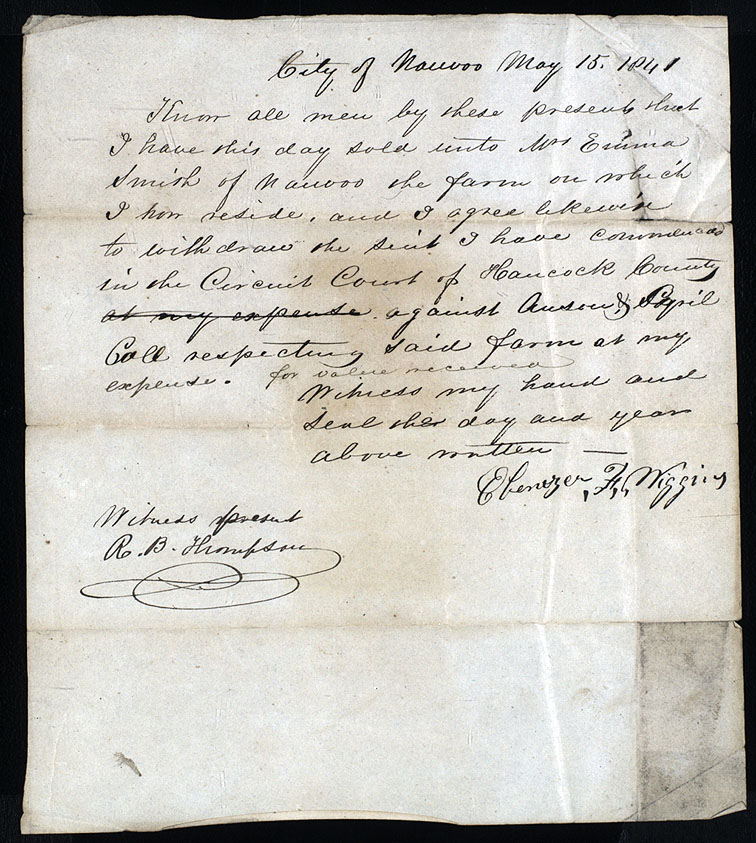 City of Nauvoo May 15. 1841
Know all men by these presents that
I have this day sold unto Mrs Emma
Smith of Nauvoo the farm on which
I now reside, and I agree likewise
to withdraw the suit I have commenced
in the Circuit Court of Hancock County
at my expense. against Anson &
Call respecting said farm at my
expense. for value received
Witness my hand and
seal the day and year
above written —
Ebenezer F. Wiggins
Witness present
R. B. Thompson